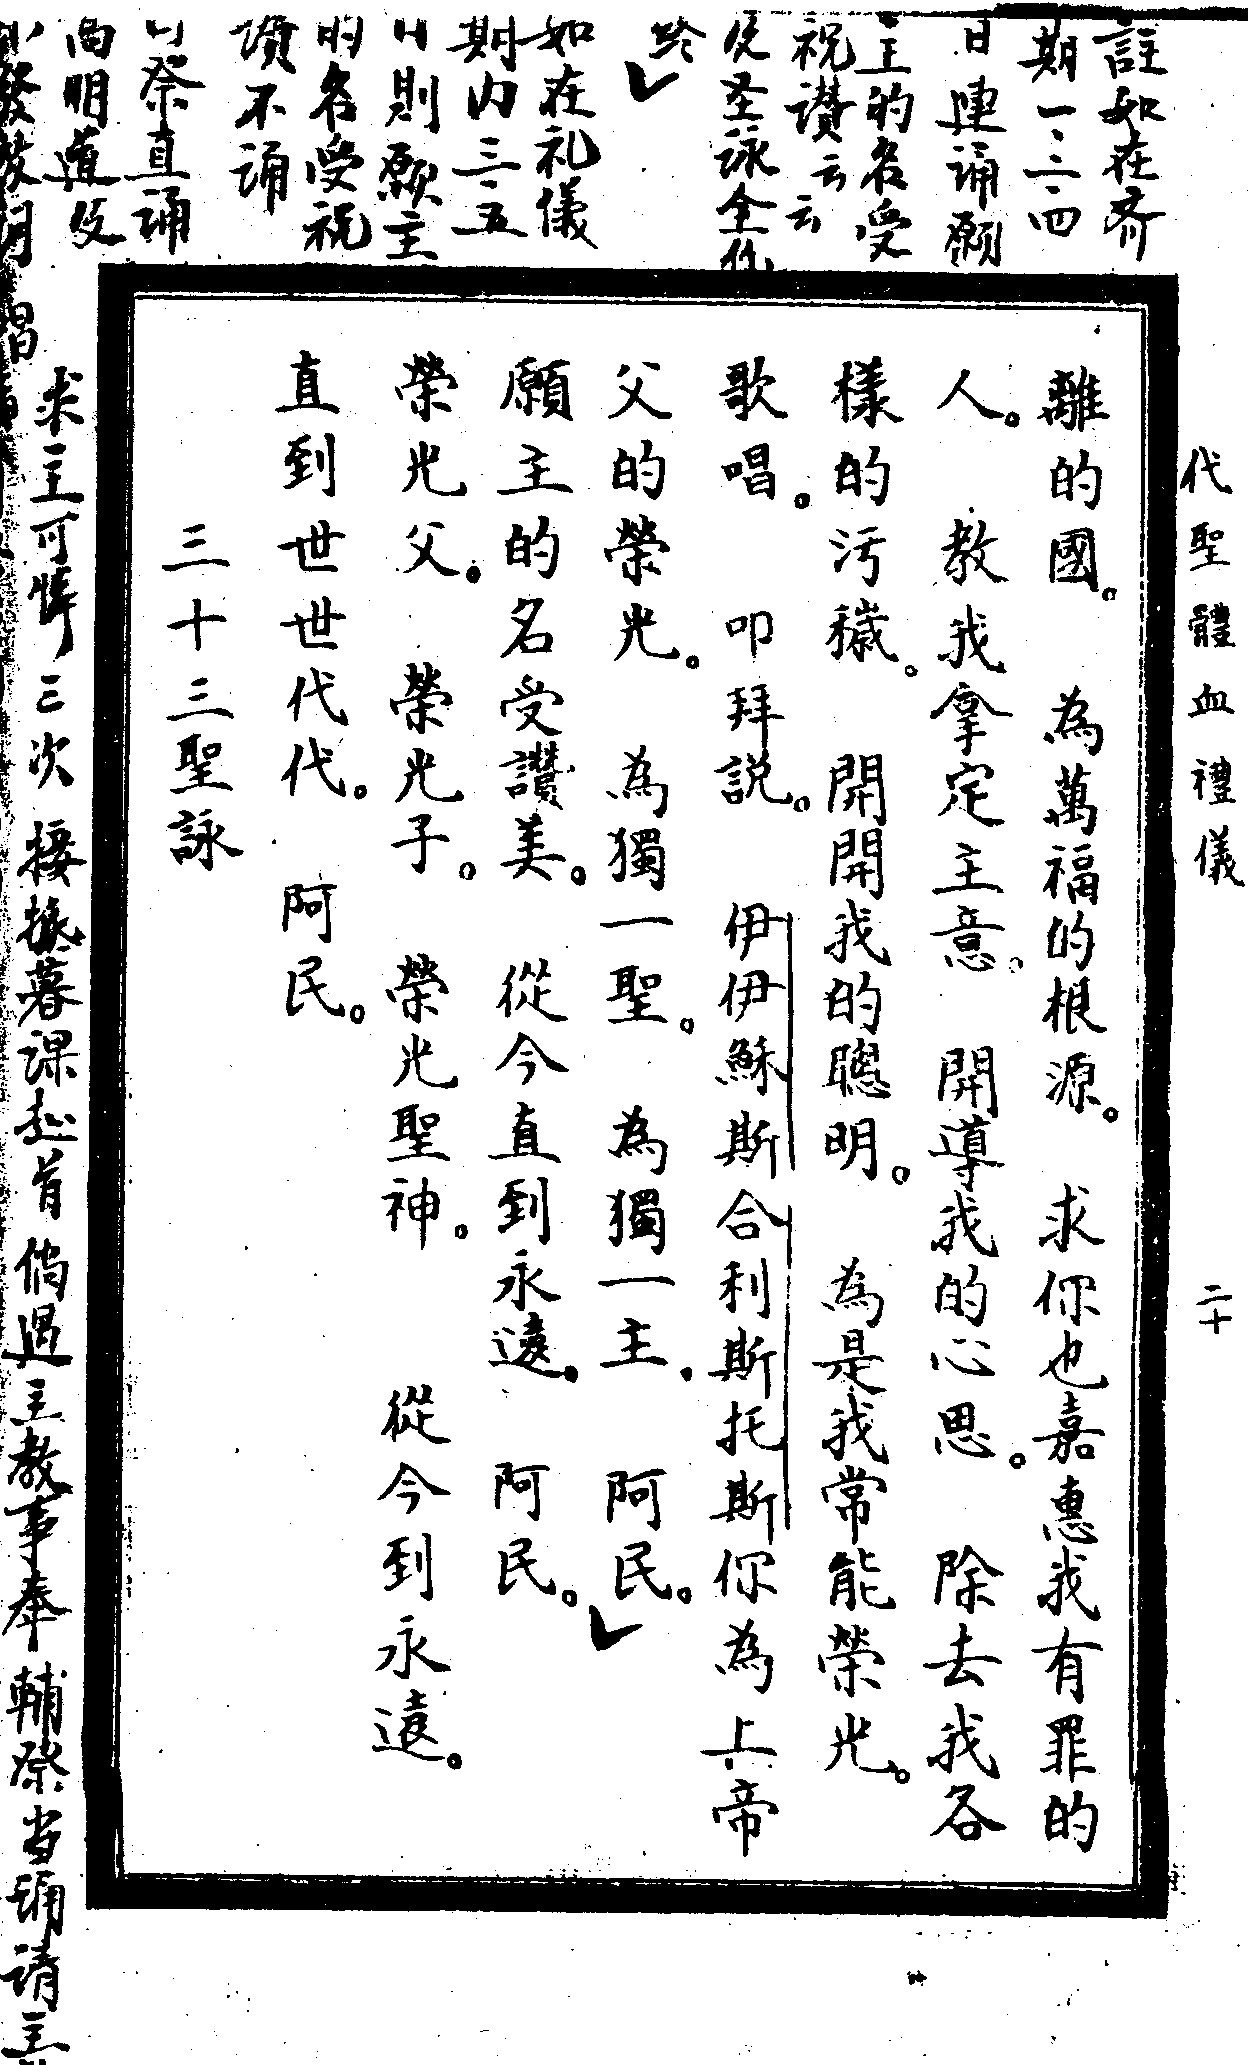 代聖體血禮儀 二十
註如在齐
期一、二、四
日連誦願
主的名受
祝讚云云
及圣詠全
終
如在礼儀
期内三、五
日則願主
的名受祝
讚不誦
祭直誦
尚明道及
離的國。 為萬福的根源。 求你也嘉惠我有罪的
人。 教我拿定主意。 開導我的心思。 除去我各
樣的污穢。 開開我的聰明。 為是我常能榮光。
歌唱。 叩拜説。 伊伊穌斯合利斯托斯你為上帝
父的榮光。 為獨一聖。 為獨一主。 阿民。
願主的名受讚美。 從今直到永遠。 阿民。
榮光父。 榮光子。 榮光聖神。 從今到永遠。
直到世世代代。 阿民。
三十三聖詠
求主可憐三次 接 暮課 首 倘遇主教事奉 輔祭当誦请主